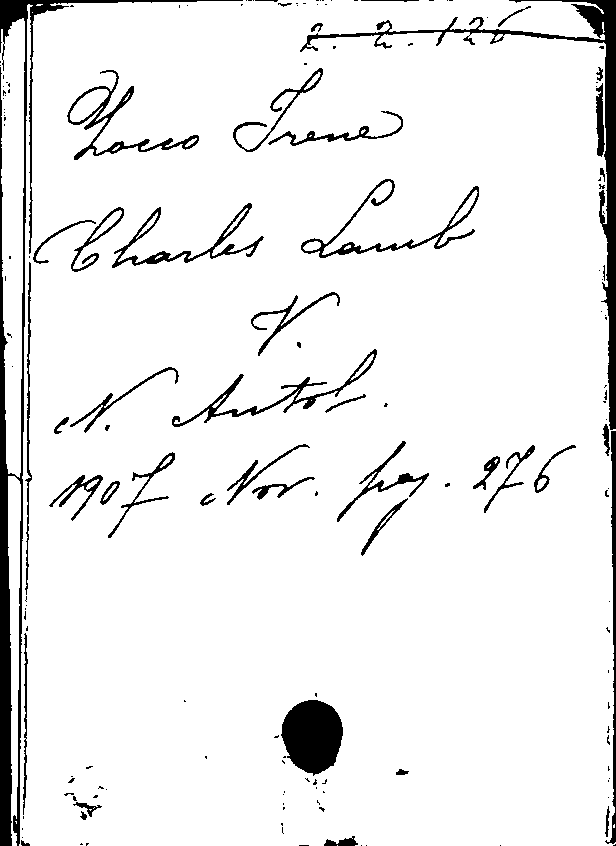 2. 2. 126
Zocco Irene
Charles Lamb
V.
N. Antol.
1907 Nov. pag. 276